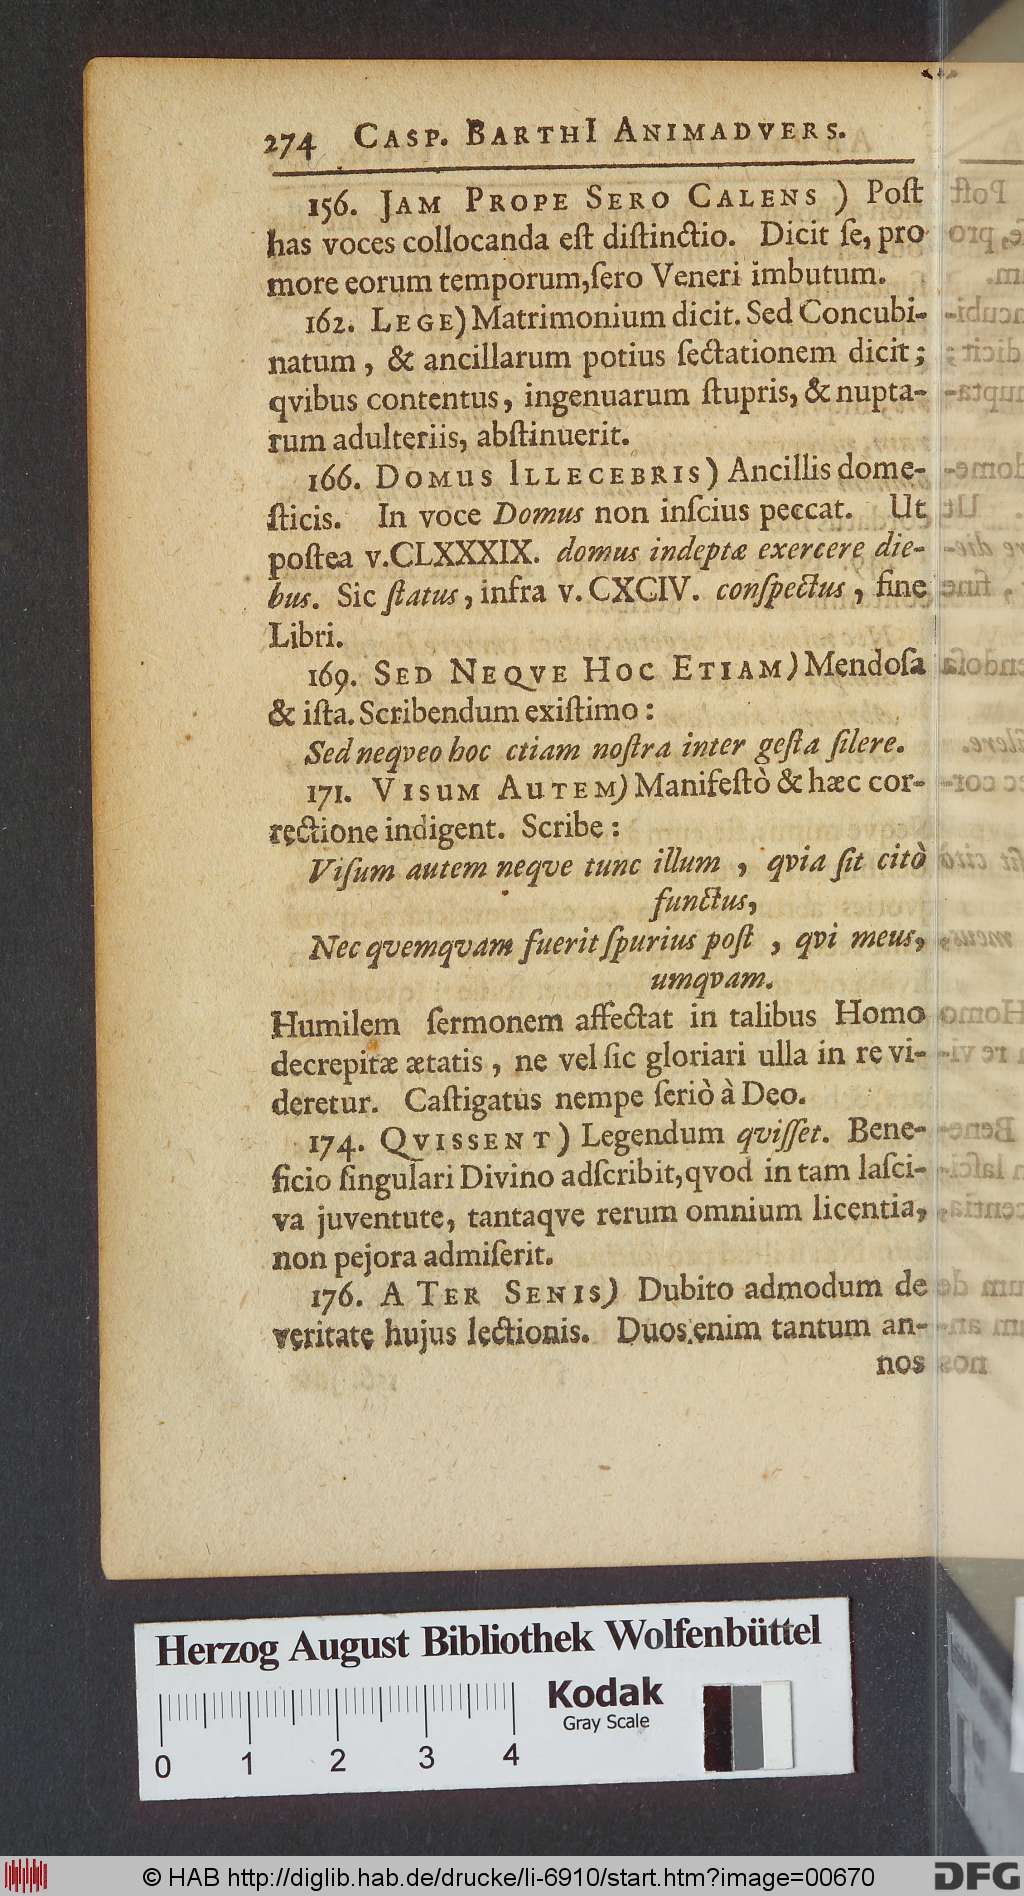 274 CASP. BARTHI ANIMADVERS.
156. JAM PROPE SERO CALENS ) Poſt
has voces collocanda eſt diſtinctio. Dicit ſe, pro
more eorum temporum,ſero Veneri imbutum.
162. LEGE) Matrimonium dicit. Sed Concubi-
natum, & ancillarum potius ſectationem dicit;
qvibus contentus, ingenuarum ſtupris, & nupta-
rum adulteriis, abſtinuerit.
166. DOMUS ILLECEBRIS) Ancillis dome-
ſticis. In voce Domus non inſcius peccat. Ut
poſtea v.CLXXXIX. domus indeptæ exercere die-
bus. Sic ſtatus, infra v. CXCIV. conſpectus, fine
Libri.
169. SED NEQVE HOC ETIAM) Mendoſa
& iſta. Scribendum exiſtimo:
Sed neqveo hoc etiam noſtra inter geſta ſilere.
171. VISUM AUTEM) Manifeſtò & hæc cor-
rectione indigent. Scribe:
Viſum autem neqve tunc illum, qvia ſit citò
functus,
Nec qvemqvam fuerit ſpurius poſt, qvi meus,
umqvam.
Humilem ſermonem affectat in talibus Homo
decrepitæ ætatis, ne vel ſic gloriari ulla in re vi-
deretur. Caſtigatus nempe ſeriò à Deo.
174. QVISSENT) Legendum qviſſet. Bene-
ficio ſingulari Divino adſcribit, qvod in tam laſci-
va juventute, tantaqve rerum omnium licentia,
non pejora admiſerit.
176. A TER SENIS) Dubito admodum de
veritate hujus lectionis. Duos enim tantum an-
nos
Herzog August Bibliothek Wolfenbüttel
Kodak
Gray Scale
0 1 2 3 4
© HAB http://diglib.hab.de/drucke/li-6910/start.htm?image=00670
DFG